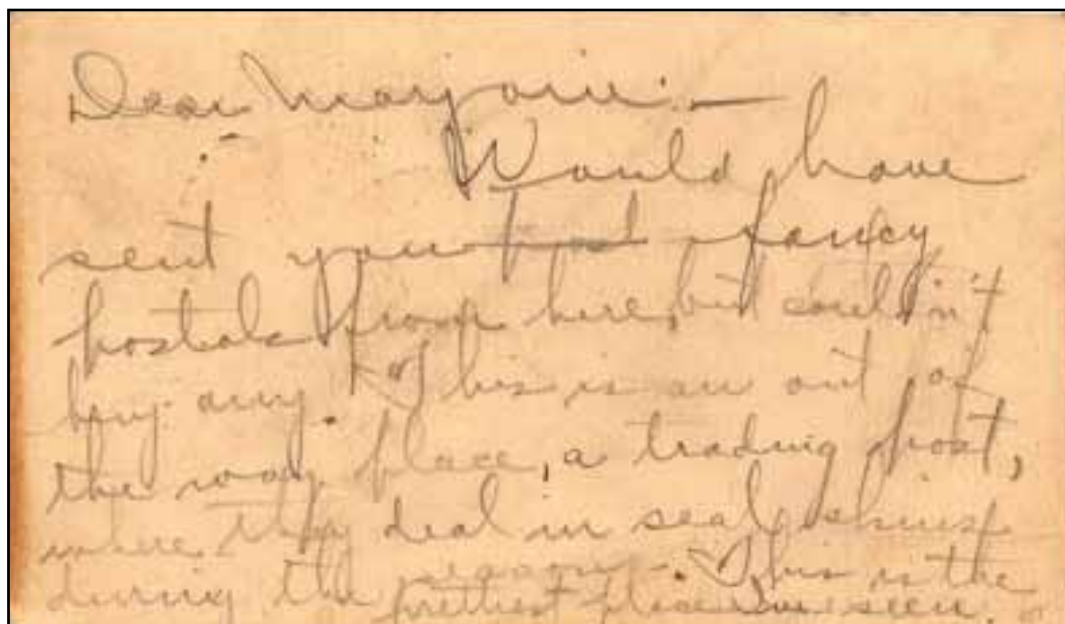 Dear Marjorie:—
Would have
sent you fancy
postals from here, but couldn't
buy any. This is an out of
the way place, a trading post,
where they deal in seal skins
during the season. This is the
prettiest place I've seen.